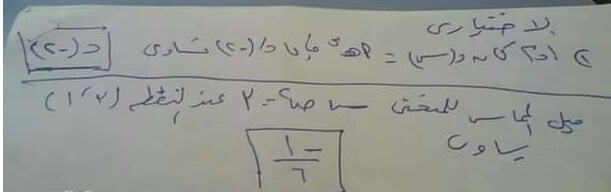 بلا ختیاری
١) اذا كانه د(س) = ٢هـ^س فإن د/(-٢) تساوى د(-٢)
ميل المماس للمنحنى س ص٢ = ٢ عند النقطة (٢،١)
يساوى
-١/٦